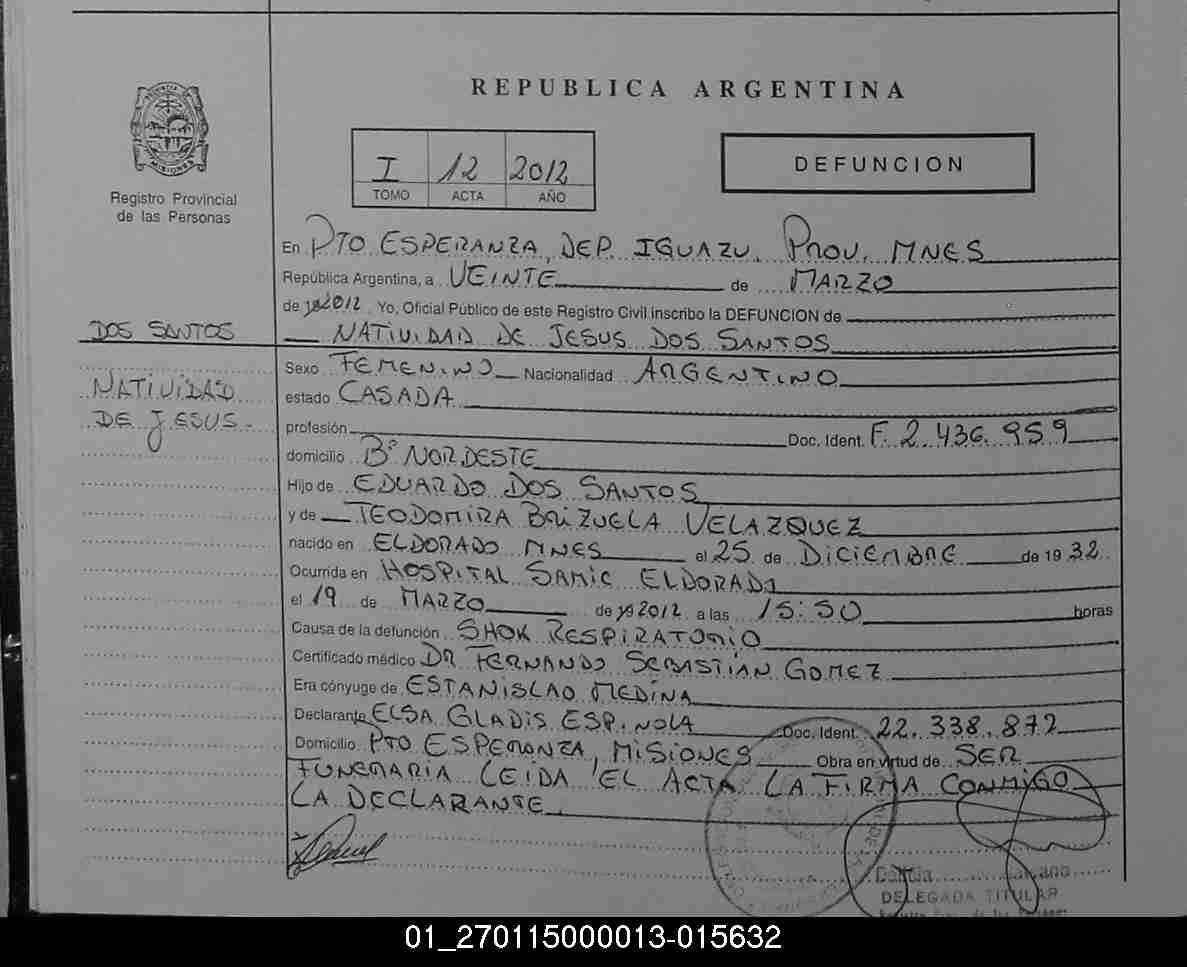 REPUBLICA ARGENTINA
PROVINCIA DE MISIONES
Registro Provincial
de las Personas
I 12 2012
TOMO ACTA AÑO
DEFUNCION
En PTO ESPERANZA, DEP. IGUAZU. PROV. MNES
República Argentina, a VEINTE de MARZO
de 2012. Yo, Oficial Público de este Registro Civil inscribo la DEFUNCION de
DOS SANTOS
NATIVIDAD DE JESUS DOS SANTOS
Sexo FEMENINO Nacionalidad ARGENTINO
NATIVIDAD
estado CASADA
DE JESUS.
profesión Doc. Ident. F. 2.436.959
domicilio B° NORDESTE
Hijo de EDUARDO DOS SANTOS
y de TEODOMIRA BRIZUELA VELAZQUEZ
nacido en ELDORADO MNES el 25 de DICIEMBRE de 19 32.
Ocurrida en HOSPITAL SAMIC ELDORADO
el 19 de MARZO de 2012 a las 15:50 horas
Causa de la defunción SHOK RESPIRATORIO
Certificado médico DR FERNANDO SEBASTIAN GOMEZ
Era cónyuge de ESTANISLAO MEDINA
Declarante ELSA GLADIS ESPINOLA Doc. Ident. 22.338.872
Domicilio PTO ESPERANZA, MISIONES Obra en virtud de SER
FUNERARIA LEIDA EL ACTA LA FIRMA CONMIGO
LA DECLARANTE.
DELEGADA TITULAR
01_270115000013-015632